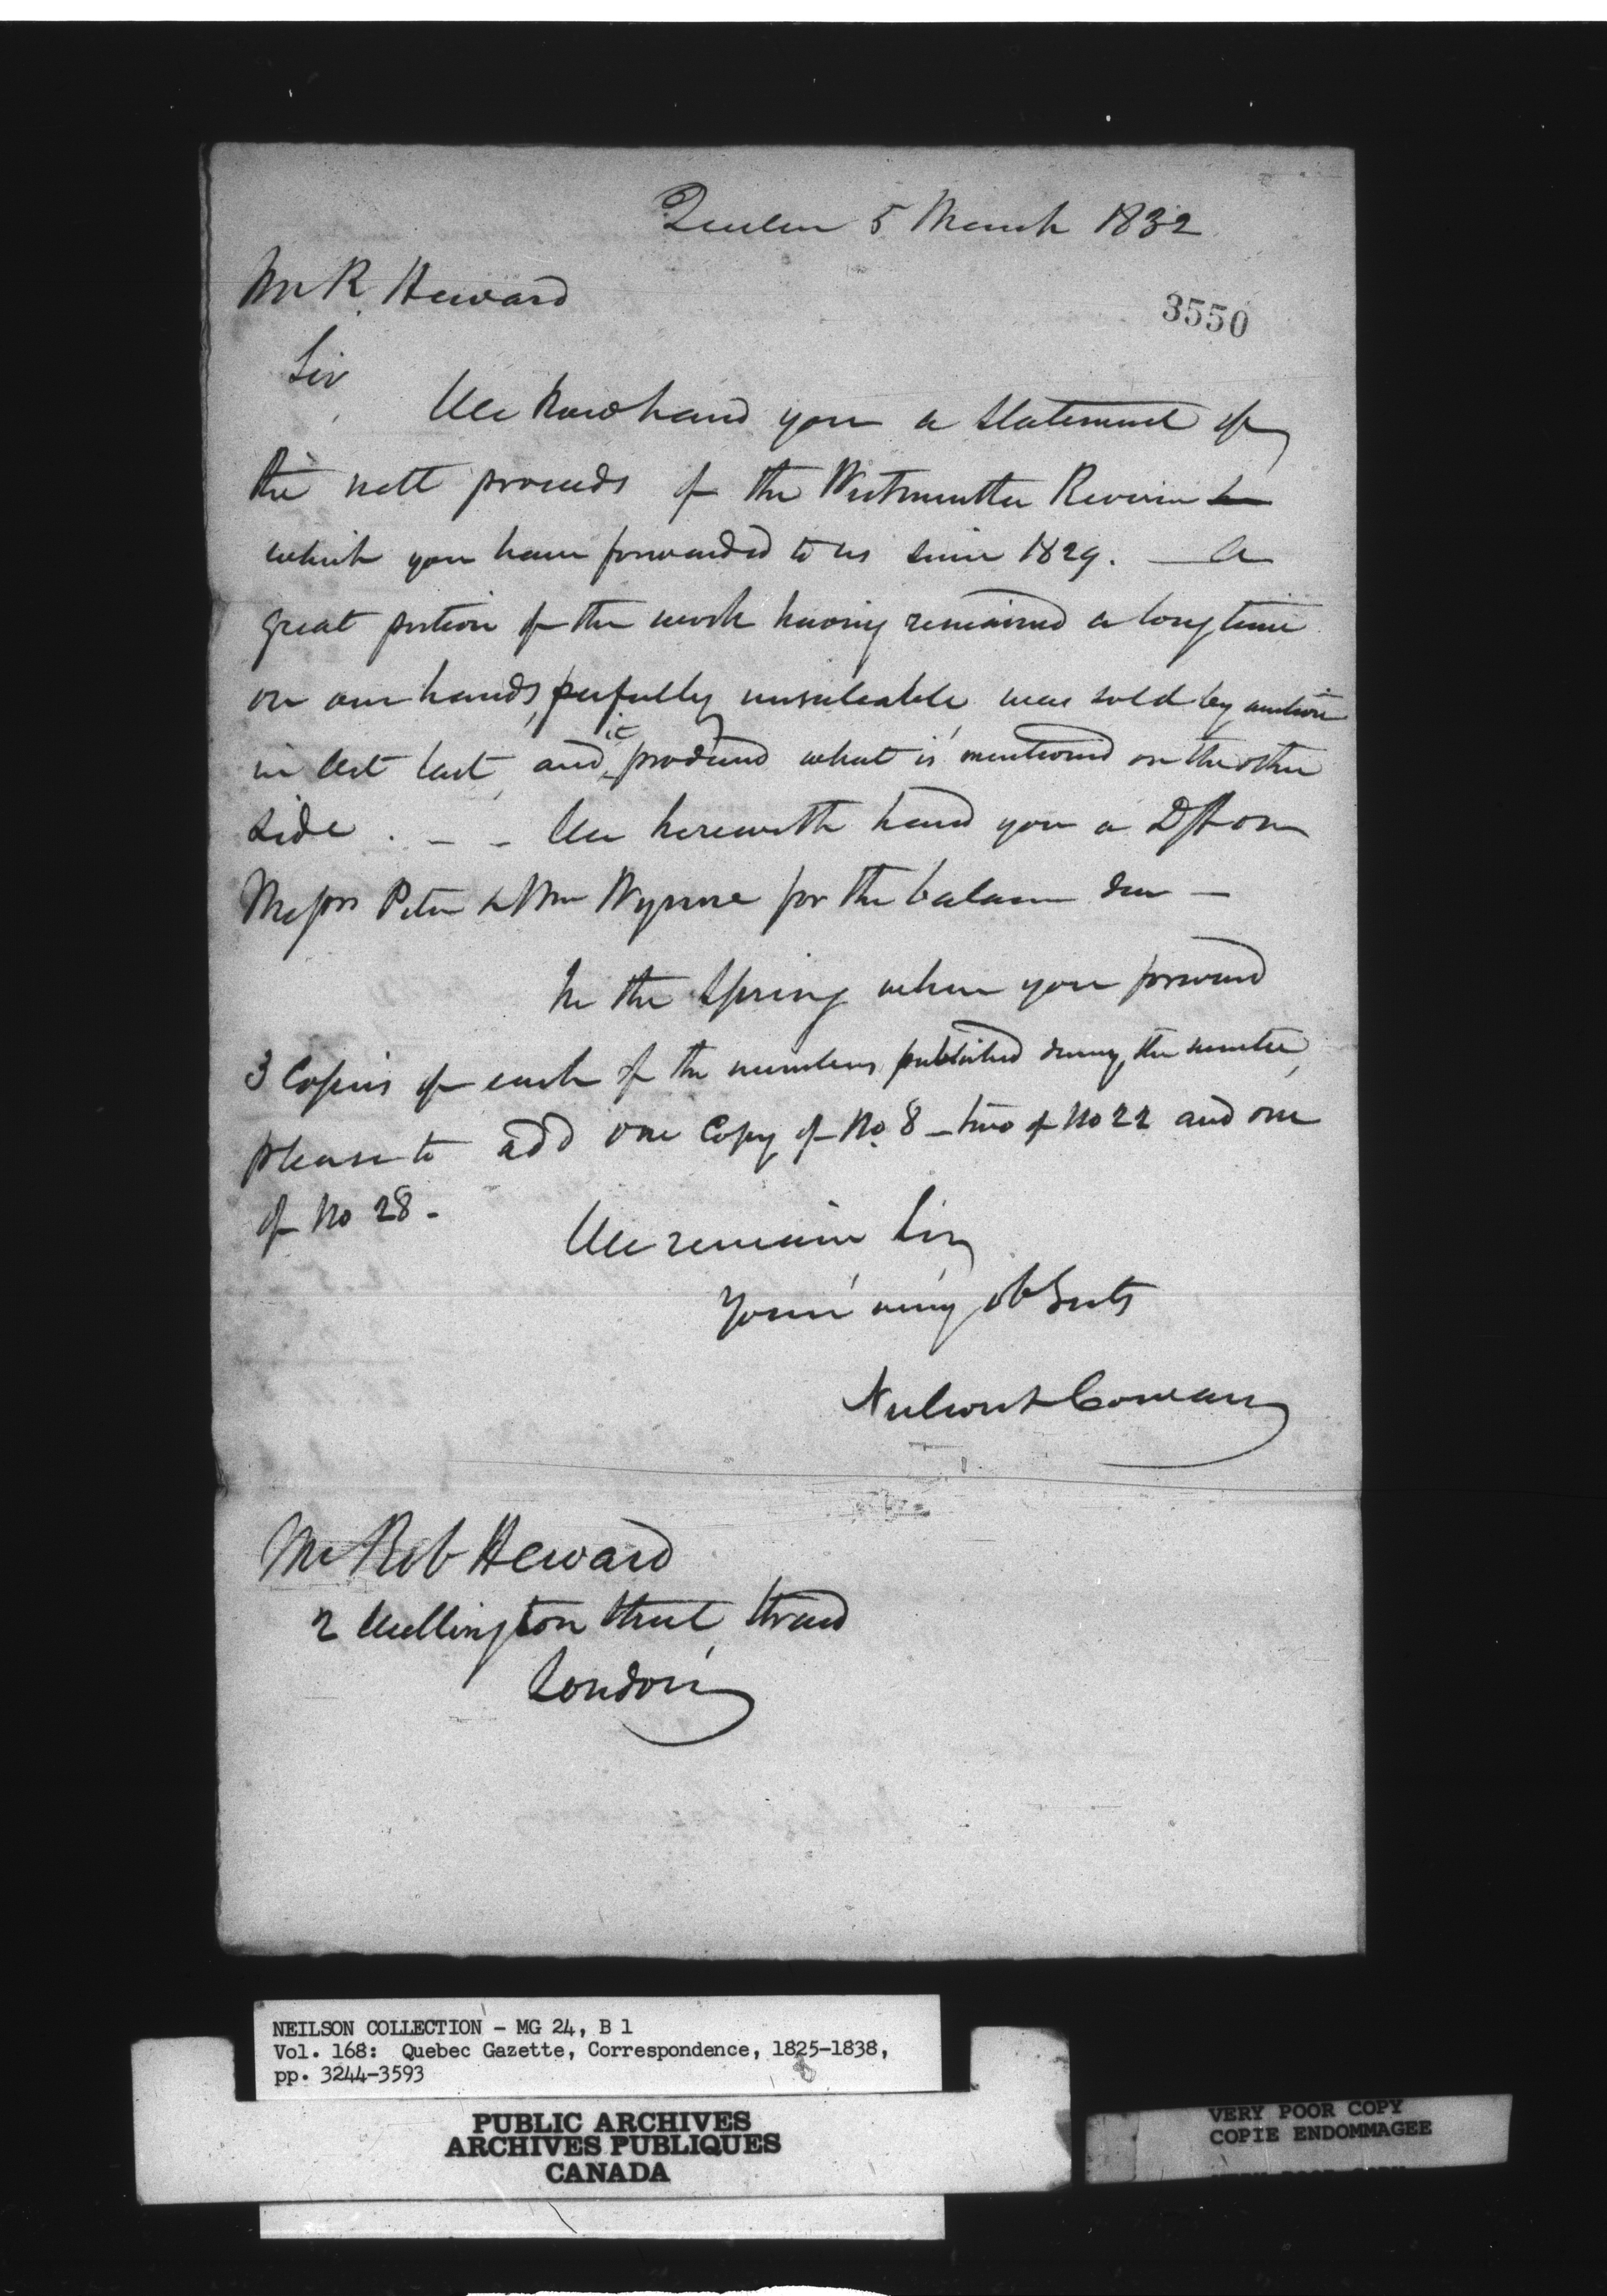 Quebec 5 March 1832
Mr R. Heward
3550
Sir
We now hand you a statement of
the nett proceeds of the Westminster Review
which you have forwarded to us since 1829. — A
great portion of the work having remained a long time
on our hands, perfectly unsaleable, was sold by auction
in Oct last, and it produced what is mentioned on the other
side. — We herewith hand you a Dft on
Messrs Peter & Wm for the balance due —
In the Spring when you forward
3 Copies of each of the numbers published during the winter,
please to add one Copy of No. 8 — two of No 22 and one
of No 28 -
We remain Sir,
Your very ob Svts
Neilson & Cowan
Mr Rob Heward
2 Wellington Street Strand
London
NEILSON COLLECTION - MG 24, B 1
Vol. 168: Quebec Gazette, Correspondence, 1825-1838,
pp. 3244-3593
PUBLIC ARCHIVES
ARCHIVES PUBLIQUES
CANADA
VERY POOR COPY
COPIE ENDOMMAGEE